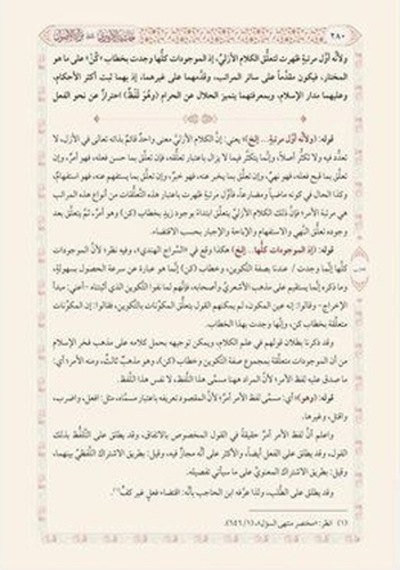 ٢٨٠
ولأنَّه أوَّل مرتبةٍ ظهرت لتعلُّق الكلام الأزليِّ، إذ الموجودات كلُّها وجدت بخطاب «كُنْ» على ما هو
المختار، فيكون مقدَّماً على سائر المراتب، وقدَّمهما على غيرهما، إذ بهما ثبت أكثر الأحكام،
وعليهما مدار الإسلام، وبمعرفتهما يتميز الحلال عن الحرام (وهُوَ لَفْظٌ) احترازٌ عن نحو الفعل
قوله: (ولأنَّه أوَّل مرتبةٍ... إلخ) يعني: إنَّ الكلام الأزليَّ معنى واحدٌ قائمٌ بذاته تعالى في الأزل، لا
تعدُّد فيه ولا تكثُّر أصلاً، وإنَّما يتكثَّر فيما لا يزال باعتبار تعلُّقه، فإن تعلَّق بما حسن فعله، فهو أمرٌ، وإن
تعلَّق بما قبح فعله، فهو نهيٌ، وإن تعلَّق بما يخبر عنه، فهو خبرٌ، وإن تعلَّق بما يستفهم عنه، فهو استفهامٌ،
وكذا الحال في كونه ماضياً ومضارعاً، فأوَّل مرتبةٍ ظهرت باعتبار هذه التعلُّقات من أنواع هذه المراتب
هي مرتبة الأمر؛ فإنَّ ذلك الكلام الأزليَّ يتعلَّق ابتداءً بوجود زيدٍ بخطاب (كن) وهو أمرٌ، ثمَّ يتعلَّق بعد
وجوده تعلُّق النَّهي والاستفهام والإباحة والإخبار بحسب الاقتضاء.
قوله: (إذ الموجودات كلُّها... إلخ) هكذا وقع في «السِّراج الهنديِّ»، وفيه نظر؛ لأنَّ الموجودات
كلَّها إنَّما وجدت / عندنا بصفة التَّكوين، وخطاب (كن) إنَّما هو عبارة عن سرعة الحصول بسهولةٍ،
وما ذكره إنَّما يستقيم على مذهب الأشعريِّ وأصحابه، فإنَّهم لما نفوا التَّكوين الذي أثبتناه -أعني: مبدأ
الإخراج- وقالوا: إنه عين المكون، لم يمكنهم القول بتعلُّق المكوَّنات بالتكوين، فقالوا: إن المكوَّنات
متعلِّقة بخطاب كن، وإنَّها وجدت بهذا الخطاب.
وقد ذكرنا بطلان قولهم في علم الكلام، ويمكن توجيهه بحمل كلامه على مذهب فخر الإسلام
من أن الموجودات متعلِّقة بمجموع صفة التكوين وخطاب (كن)، وهو مذهبٌ ثالثٌ، ومنه الأمر؛ أي:
ما صدق عليه لفظ الأمر؛ لأنَّ المراد ههنا مسمَّى هذا اللَّفظ، لا نفس هذا اللَّفظ.
قوله: (وهو) أي: مسمَّى لفظ الأمر أمرٌ؛ لأنَّ المقصود تعريفه باعتبار مسمَّاه، مثل: افعل، واضرب،
واقتل، وغيرها.
واعلم أنَّ لفظ الأمر أمرٌ حقيقةٌ في القول المخصوص بالاتفاق، وقد يطلق على التَّلفُّظ بذلك
القول، وقد يطلق على الفعل أيضاً، والأكثر على أنَّه مجازٌ فيه، وقيل: بطريق الاشتراك اللَّفظيِّ بينهما،
وقيل: بطريق الاشتراك المعنويِّ على ما سيأتي تفصيله.
وقد يطلق على الطَّلب، ولذا عرَّفه ابن الحاجب بأنَّه: اقتضاء فعلٍ غير كفٍّ(١).
(١) انظر: «مختصر منتهى السؤل»، (١/ ٦٥٦).